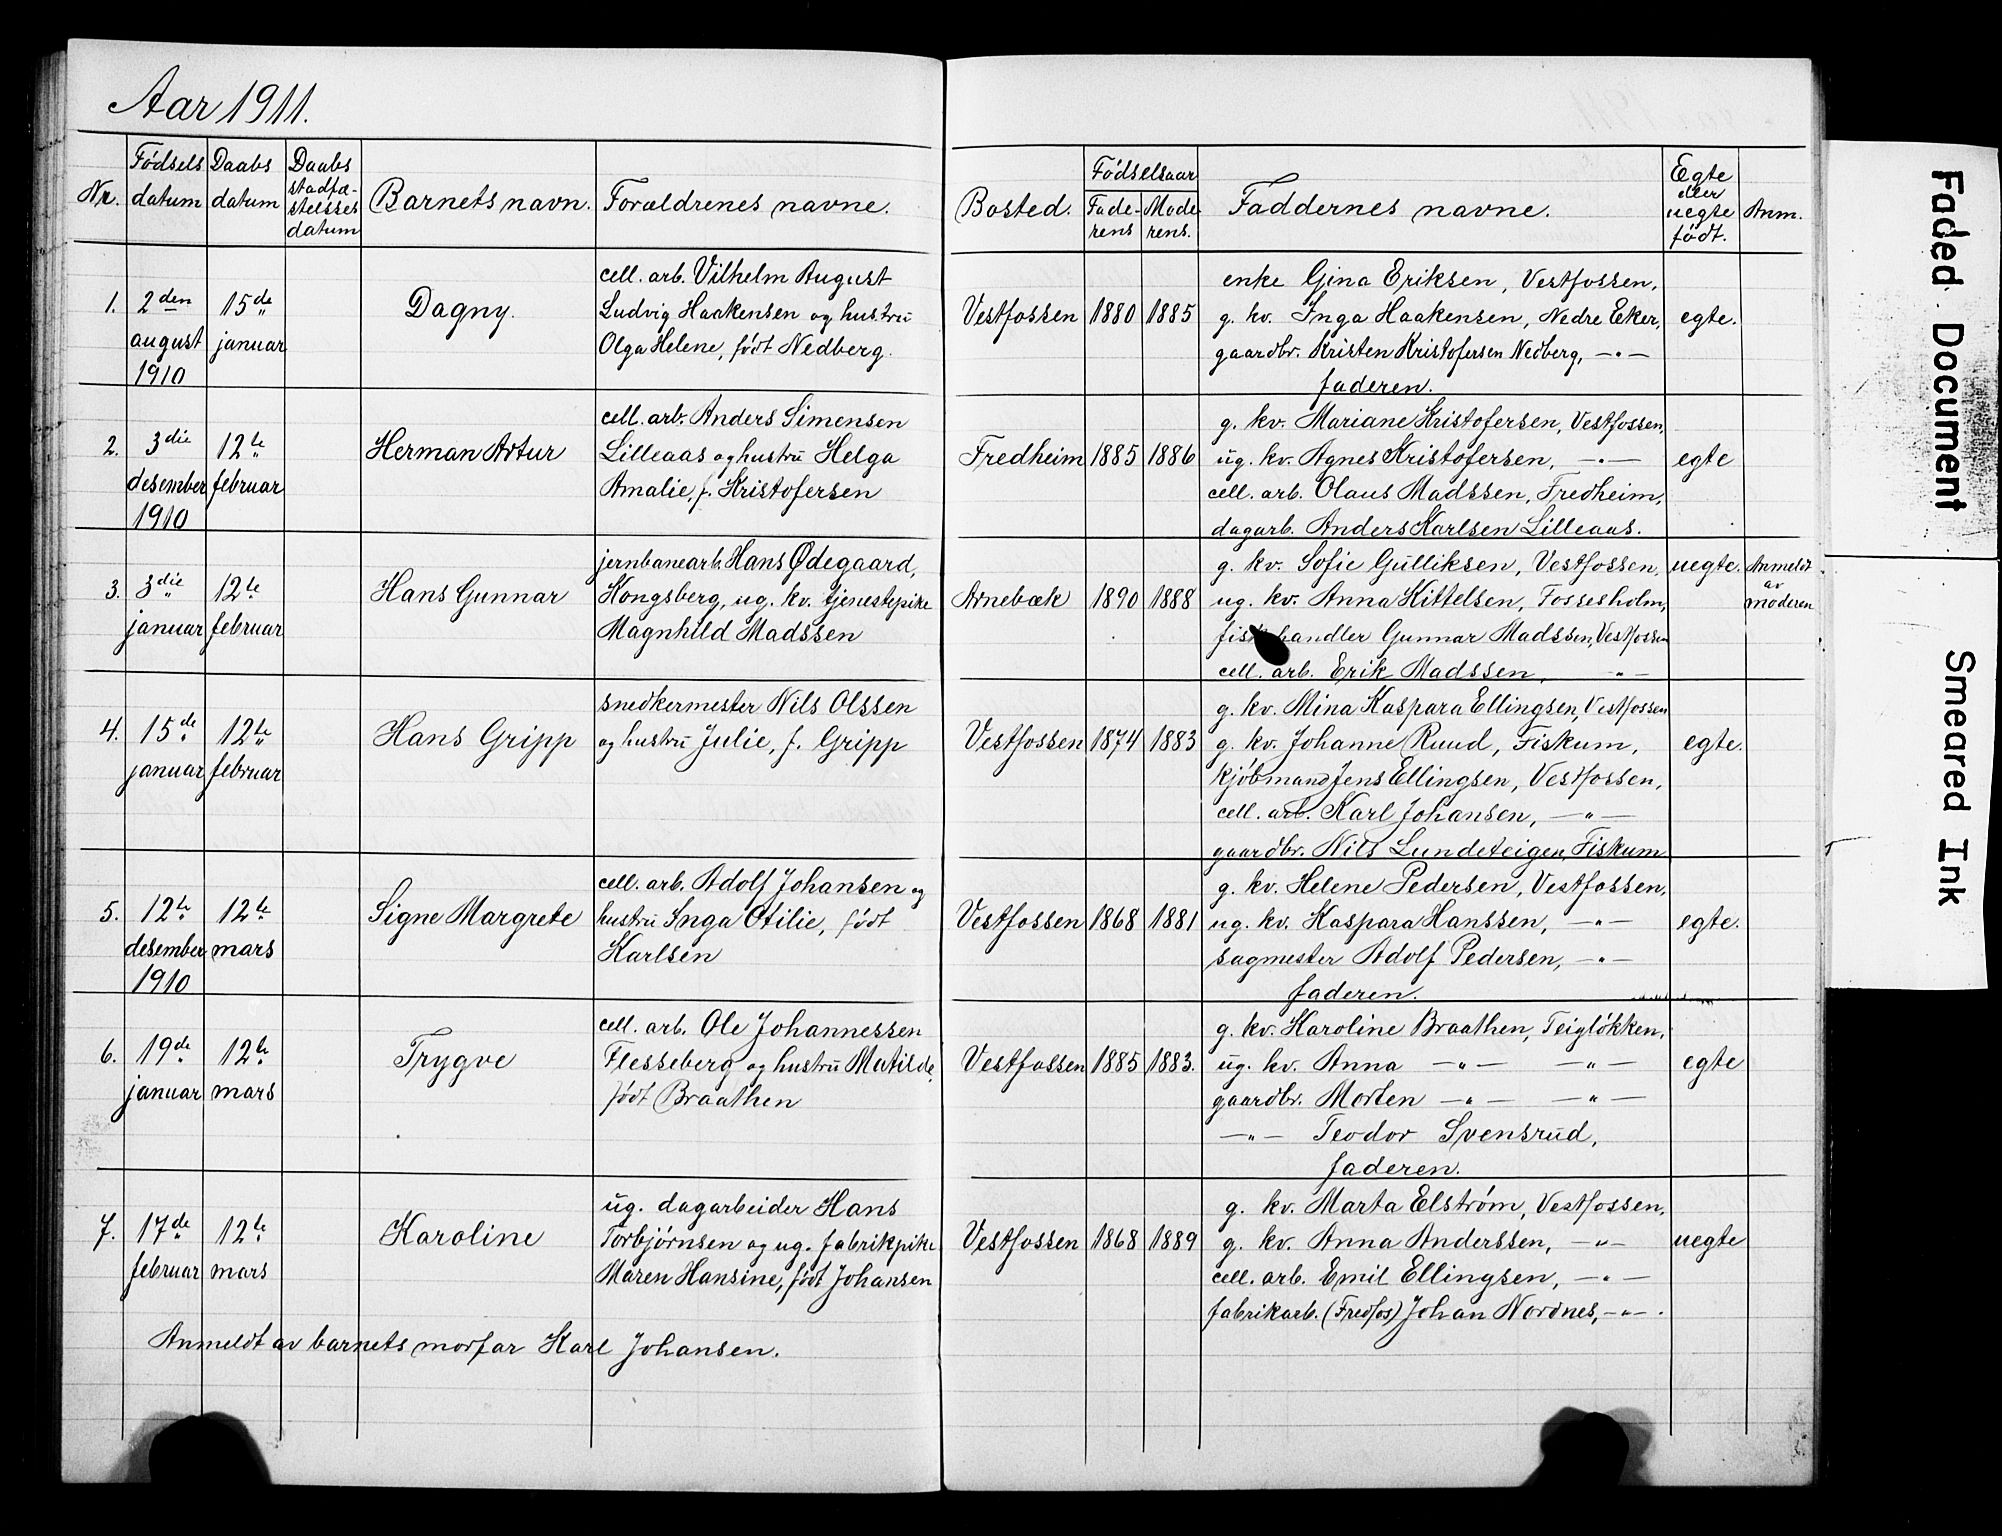 Aar 1911.
Nr. Fødsels datum Daabs datum Daabs stadfæ- stelses datum Barnets navn. Forældrenes navne. Bosted. Fødselsaar Fade- rens Mode rens. Faddernes navne. Egte eller uegte født. Anm.
1. 2den august 1910 15de januar Dagny.
cell. arb. Vilhelm August
Ludvig Haakensen og hustru
Olga Helene, født Nedberg.
Vestfossen 1880 1885
enke Gina Eriksen, Vestfossen,
g. kv. Inga Haakensen, Nedre Eker,
gaardbr. Kristen Kristofersen Nedberg, —"—
faderen.
egte.
2. 3die desember 1910 12te februar Herman Artur
cell. arb. Anders Simensen
Lilleaas og hustru Helga
Amalie, f. Kristofersen
Fredheim 1885 1886
g. kv. Mariane Kristofersen, Vestfossen,
ug. kv. Agnes Kristofersen, —"—
cell. arb. Olaus Madssen, Fredheim,
dagarb. Anders Karlsen Lilleaas.
egte
3. 3die januar 12te februar Hans Gunnar
jernbanearb. Hans Ødegaard,
Kongsberg, ug. kv. tjenestepike
Magnhild Madssen
Arnebæk 1890 1888
g. kv. Sofie Gulliksen, Vestfossen,
ug. kv. Anna Kittelsen, Fossesholm,
fiskehandler Gunnar Madssen, Vestfossen
cell. arb. Erik Madssen, —"—
uegte.
Anmeldt
av
moderen
4. 15de januar 12te februar Hans Gripp
snedkermester Nils Olssen
og hustru Julie, f. Gripp
Vestfossen 1874 1883
g. kv. Mina Kaspara Ellingsen, Vestfossen
g. kv. Johanne Ruud, Fiskum,
kjøbmand Jens Ellingsen, Vestfossen,
cell. arb. Karl Johansen, —"—
gaardbr. Nils Lundeteigen, Fiskum
egte.
5. 12te desember 1910 12te mars Signe Margrete
cell. arb. Adolf Johansen og
hustru Inga Otilie, født
Karlsen
Vestfossen 1868 1881
g. kv. Helene Pedersen, Vestfossen,
ug. kv. Kaspara Hanssen, —"—
sagmester Adolf Pedersen, —"—
faderen.
egte.
6. 19de januar 12te mars Trygve
cell. arb. Ole Johannessen
Flesseberg og hustru Matilde,
født Braathen
Vestfossen 1885 1883.
g. kv. Karoline Braathen, Teigløkken,
ug. kv. Anna —"— —"—
gaardbr. Morten —"— —"—
—"— Teodor Svensrud,
faderen.
egte
7. 17de februar 12te mars Karoline
ug. dagarbeider Hans
Torbjørnsen og ug. fabrikpike
Maren Hansine, født Johansen
Vestfossen 1868 1889
g. kv. Marta Elstrøm, Vestfossen,
g. kv. Anna Anderssen, —"—
cell. arb. Emil Ellingsen, —"—
fabrikarb. (Fredfos) Johan Nordnes, —"—.
uegte
Anmeldt av barnets morfar Karl Johansen.
Faded Document
Smeared Ink